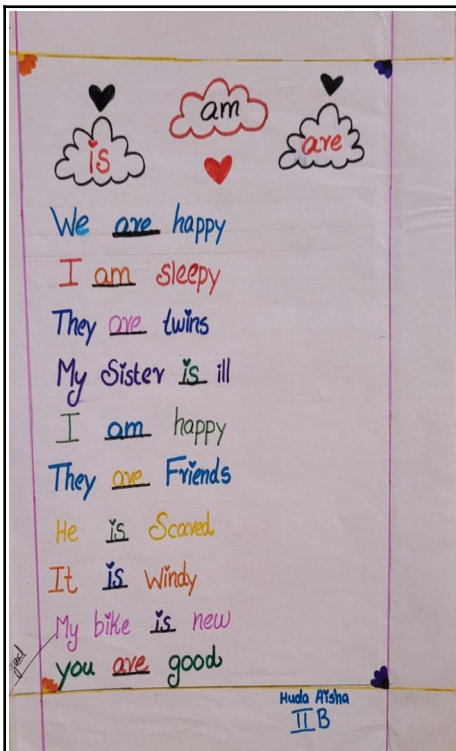 is am are
We are happy
I am sleepy
They are twins
My Sister is ill
I am happy
They are Friends
He is Scared
It is windy
My bike is new
you are good
Huda Aisha
II B